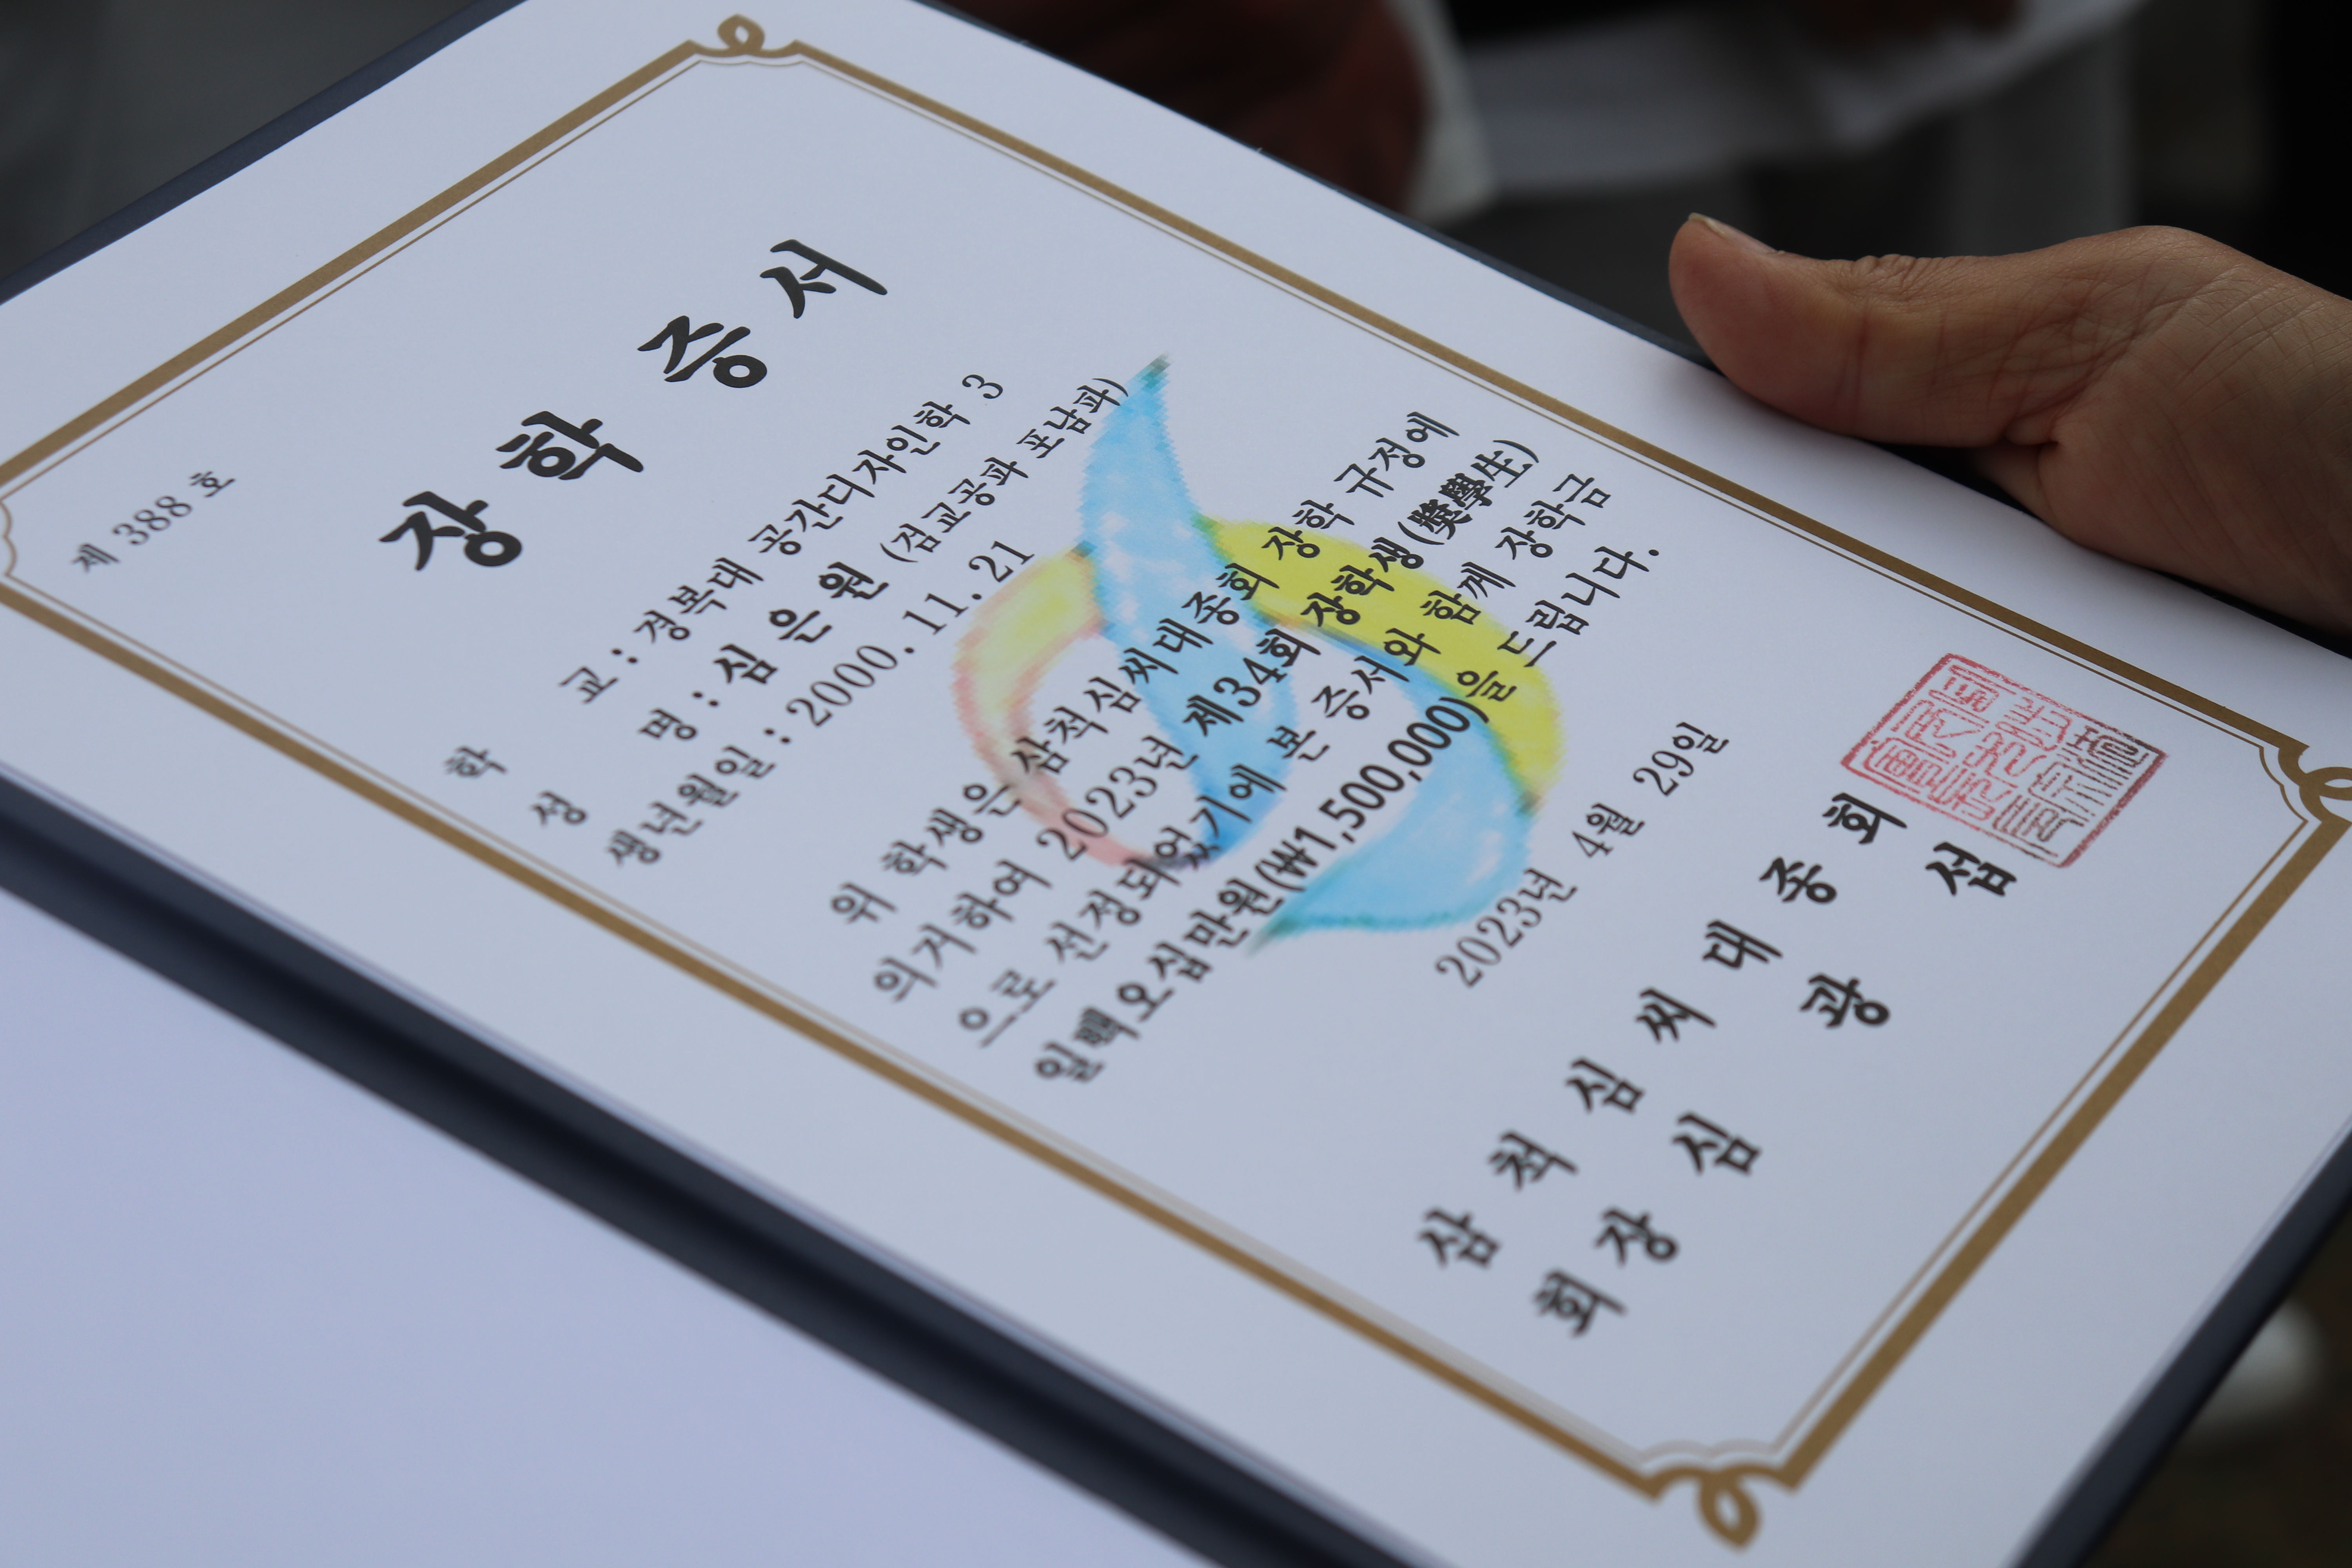 제 388 호
장 학 증 서
학 교 : 경복대 공간디자인학 3
성 명 : 심 은 원 (첨교공파 포남파)
생년월일 : 2000. 11. 21
위 학생은 삼척심씨대종회 장학 규정에
의거하여 2023년 제34회 장학생(獎學生)
으로 선정되었기에 본 증서와 함께 장학금
일백오십만원(₩1,500,000)을 드립니다.
2023년 4월 29일
삼 척 심 씨 대 종 회
회 장 심 광 섭